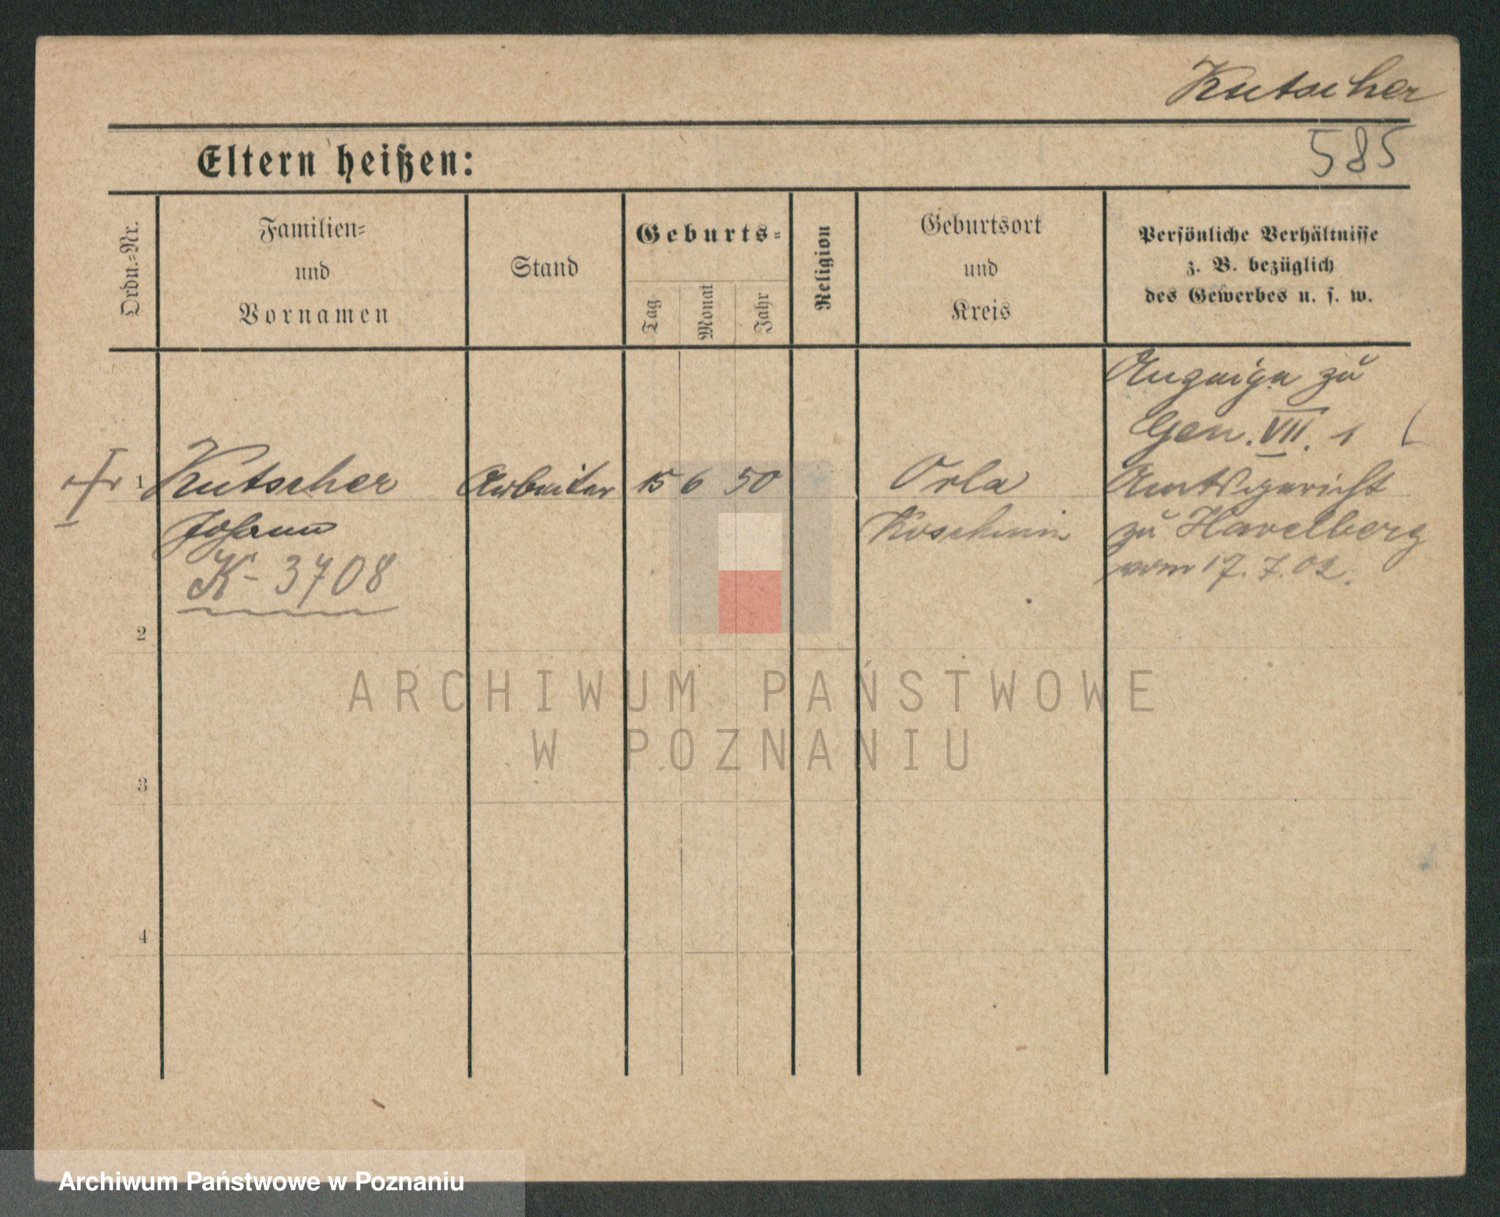 Kutscher
585
Eltern heißen:
Ordn.-Nr.
Familien-
und
Vornamen
Stand
Geburts-
Tag
Monat
Jahr
Religion
Geburtsort
und
Kreis
Persönliche Verhältnisse
z. B. bezüglich
des Gewerbes u. s. w.
Anzeige zu
Gen. VII. 1
1 Kutscher Arbeiter 15 6 50 Orla Amtsgericht
Johann Koschmin zu Havelberg
K-3708 vom 17.7.02.
2
3
4
ARCHIWUM PAŃSTWOWE
W POZNANIU
Archiwum Państwowe w Poznaniu